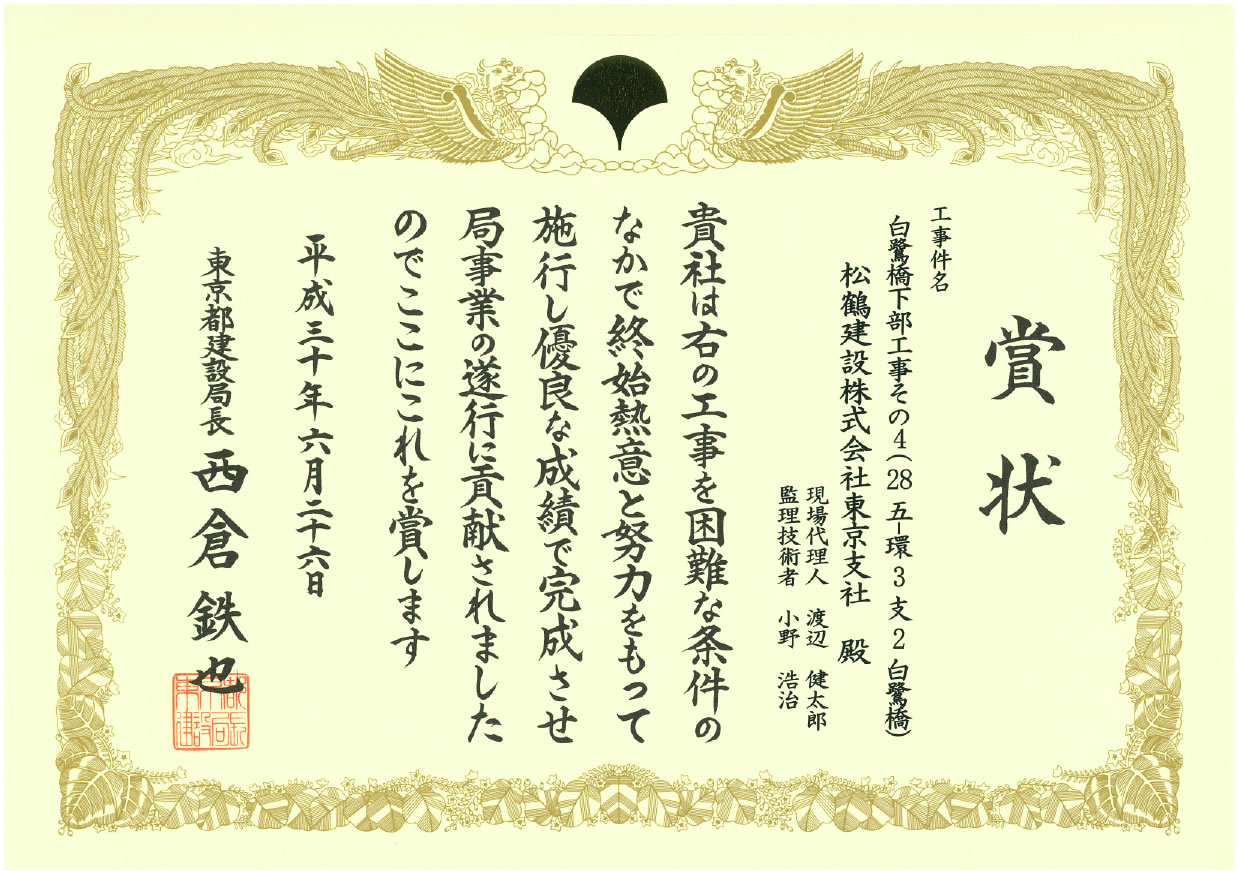 賞状
工事件名
白鷺橋下部工事その4(28 五-環 3 支 2 白鷺橋)
松鶴建設株式会社東京支社 殿
現場代理人 渡辺 健太郎
監理技術者 小野 浩治
貴社は右の工事を困難な条件の
なかで終始熱意と努力をもって
施行し優良な成績で完成させ
局事業の遂行に貢献されました
のでここにこれを賞します
平成三十年六月二十六日
東京都建設局長 西倉鉄也
東京都建設局長